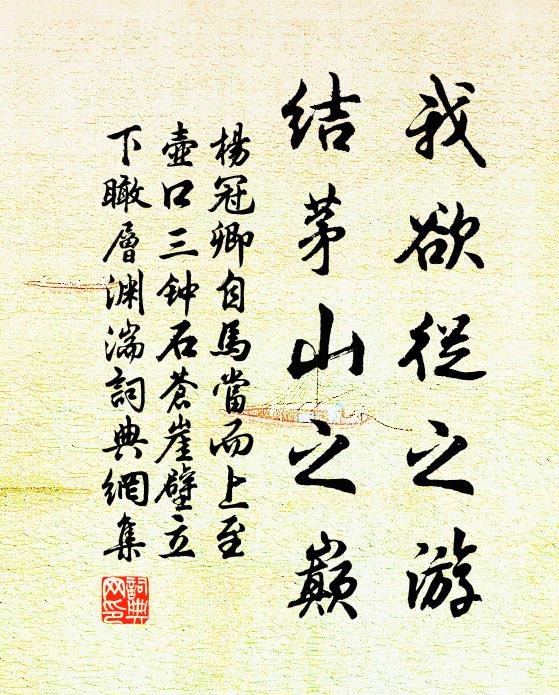 我欲從之游
結茅山之巔
楊冠卿自馬當而上至
壺口三钟石蒼崖壁立
下瞰層渊湍詞典網集
詞典
网印